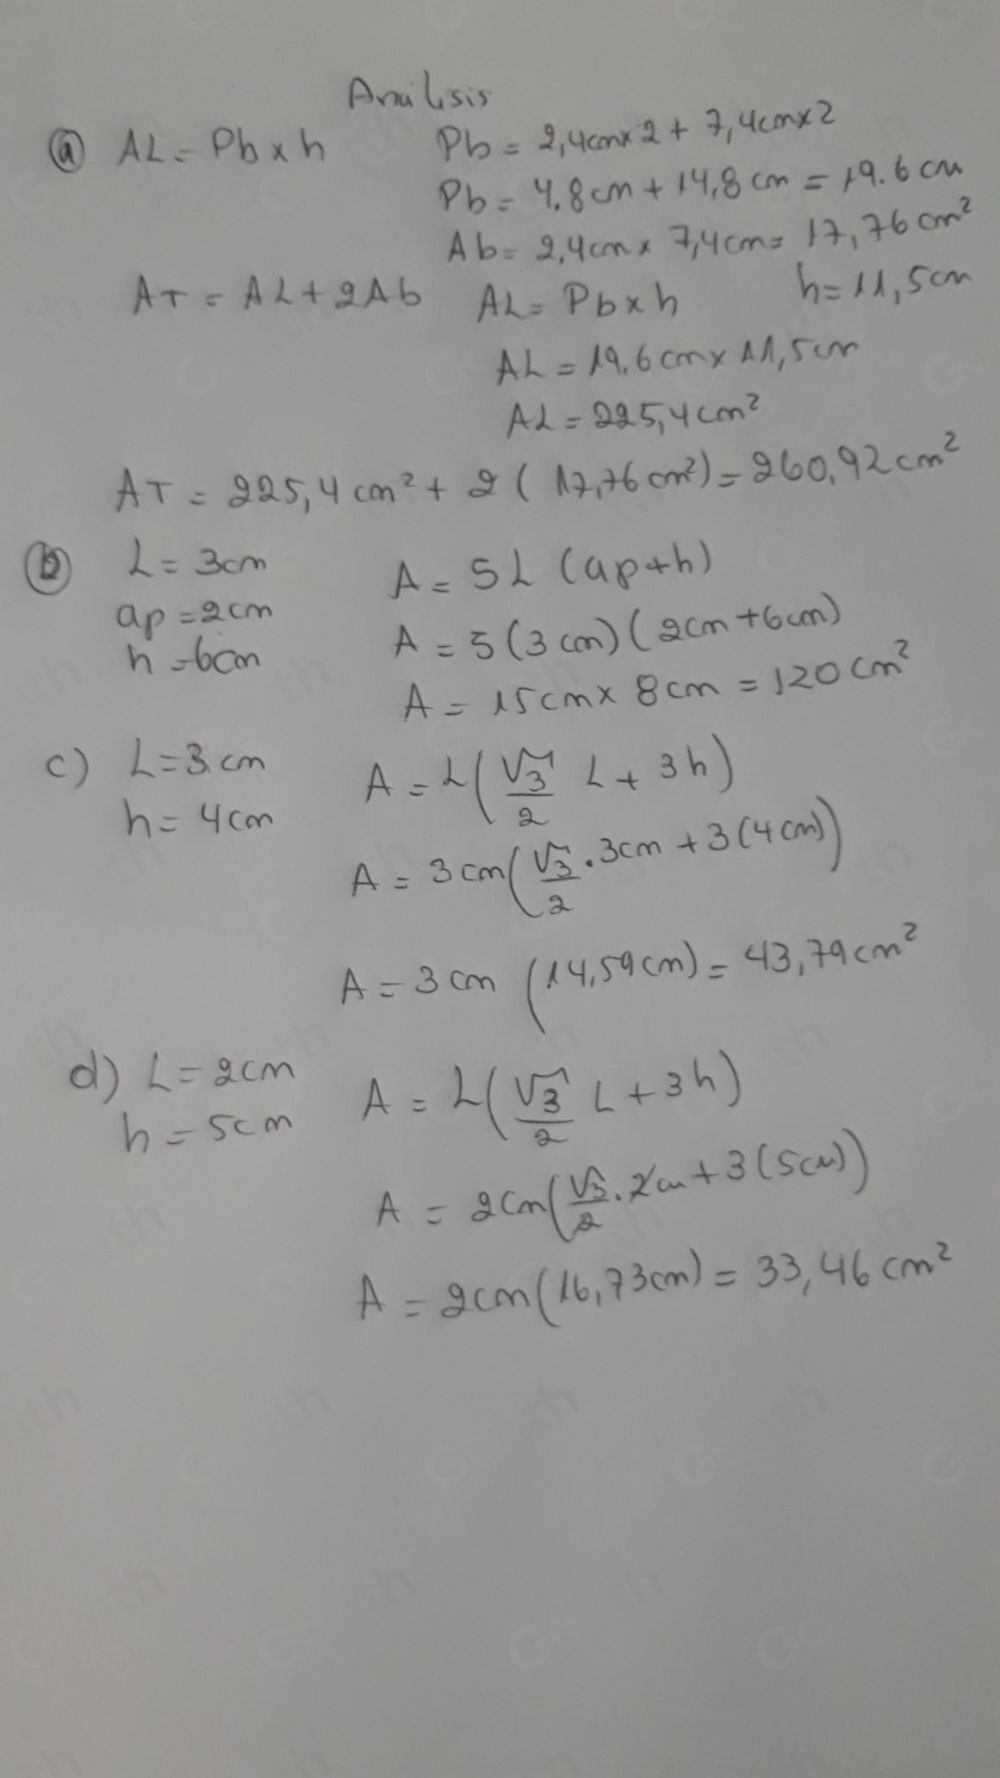 Análisis
ⓐ AL = Pb x h   Pb = 2,4cm x 2 + 7,4cm x 2
Pb = 4.8cm + 14,8cm = 19.6cm
Ab = 2,4cm x 7,4cm = 17,76cm²
AT = AL + 2Ab   AL = Pb x h   h = 11,5cm
AL = 19.6cm x 11,5cm
AL = 225,4cm²
AT = 225,4cm² + 2(17,76cm²) = 260,92cm²
ⓑ L = 3cm   A = 5L (ap + h)
ap = 2cm   A = 5(3cm)(2cm + 6cm)
h = 6cm   A = 15cm x 8cm = 120cm²
c) L = 3cm   A = L(√3/2 L + 3h)
h = 4cm
A = 3cm(√3/2 . 3cm + 3(4cm))
A = 3cm (14,59cm) = 43,79cm²
d) L = 2cm   A = L(√3/2 L + 3h)
h = 5cm
A = 2cm(√3/2 . 2cm + 3(5cm))
A = 2cm(16,73cm) = 33,46cm²